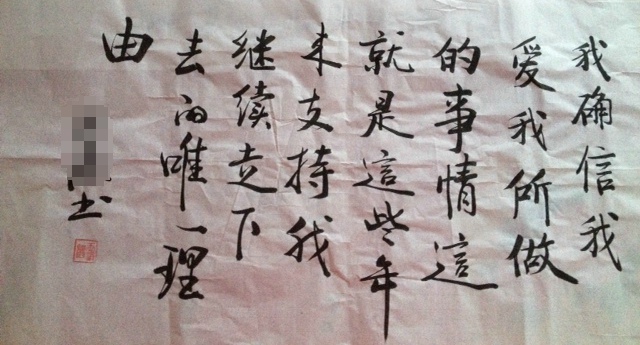 我确信我
爱我所做
的事情這
就是這些年
来支持我
继续走下
去的唯一理
由
書